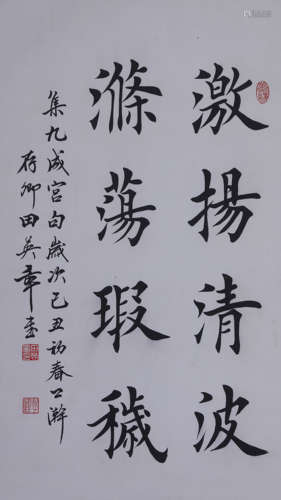 激揚清波
滌蕩瑕穢
集九成宮句歲次己丑初春
存卿田英章書